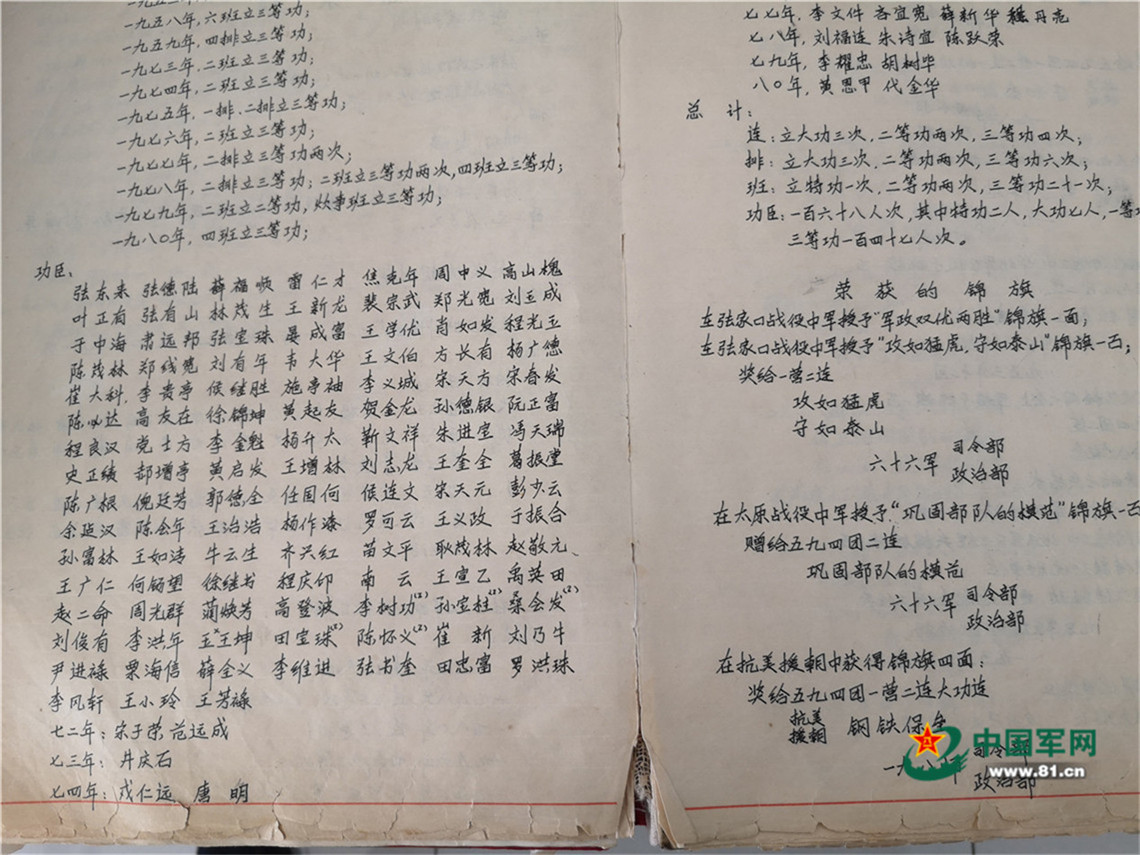 一九五八年，六班立三等功；
一九五九年，四排立三等功；
一九七三年，二班立三等功；
一九七四年，二班立三等功；
一九七五年，一排、二排立三等功；
一九七六年，二班立三等功；
一九七七年，二排立三等功两次；
一九七八年，二排立三等功；二班立三等功两次，四班立三等功；
一九七九年，二班立二等功，炊事班立三等功；
一九八〇年，四班立三等功；
功臣：
张东来 张德陆 薛福顺 雷仁才 焦克年 周中义 高山槐
叶正有 张有山 林茂生 王新龙 裴宗武 郑光宽 刘玉成
于中海 肃远邦 张宝珠 晏成富 王学优 肖如发 程光玉
陈茂林 郑线宽 刘有年 韦大华 王文伯 方长有 杨广德
崔大科 李贵亭 侯继胜 施亭袖 李义城 宋天方 宋春发
陈必达 高友在 徐锦坤 黄起友 贺金龙 孙德银 阮正富
程良汉 党士方 李金魁 杨升太 靳文祥 朱进宝 冯天瑞
史正绩 郝增亭 黄启发 王增林 刘志龙 王奎全 葛振堂
陈广根 倪廷芳 郭德全 任国何 侯连文 宋天元 彭少云
余延汉 陈会年 王治浩 杨作漆 罗可云 王义政 于振合
孙富林 王如涛 牛云生 齐兴红 苗文平 耿茂林 赵敬元
王广仁 何锡望 徐继书 程庆仰 南云 王宣乙 禹英田
赵二命 周光群 蔺焕芳 高登波 李树功⁽²⁾ 孙宝柱⁽²⁾ 桑会发⁽²⁾
刘俊有 李洪年 王坤 田宝珠⁽²⁾ 陈怀义⁽²⁾ 崔新 刘乃牛
尹进禄 栗海信 薛全义 李维进 张书奎 田忠富 罗洪珠
李凤轩 王小玲 王芳禄
七二年：宋子荣，范运成
七三年：井庆石
七四年：戎仁远 唐明
七七年，李文件 吝宜宽 薛新华 魏丹亮
七八年，刘福连 朱诗宜 陈跃荣
七九年，李耀忠 胡树华
八〇年，黄思甲 代金华
总计：
连：立大功三次，二等功两次，三等功四次；
排：立大功三次，二等功两次，三等功六次；
班：立特功一次，二等功两次，三等功二十一次；
功臣：一百六十八人次，其中特功二人，大功七人，一等
三等功一百四十七人次。
荣获的锦旗
在张家口战役中军授予“军政双优两胜”锦旗一面；
在张家口战役中军授予“攻如猛虎，守如泰山”锦旗一面；
奖给一营二连
攻如猛虎
守如泰山
六十六军 司令部
政治部
在太原战役中军授予“巩固部队的模范”锦旗一面
赠给五九四团二连
巩固部队的模范
六十六军 司令部
政治部
在抗美援朝中获得锦旗四面：
奖给五九四团一营二连大功连
抗美援朝 钢铁保垒
司令部
政治部
中国军网
www.81.cn